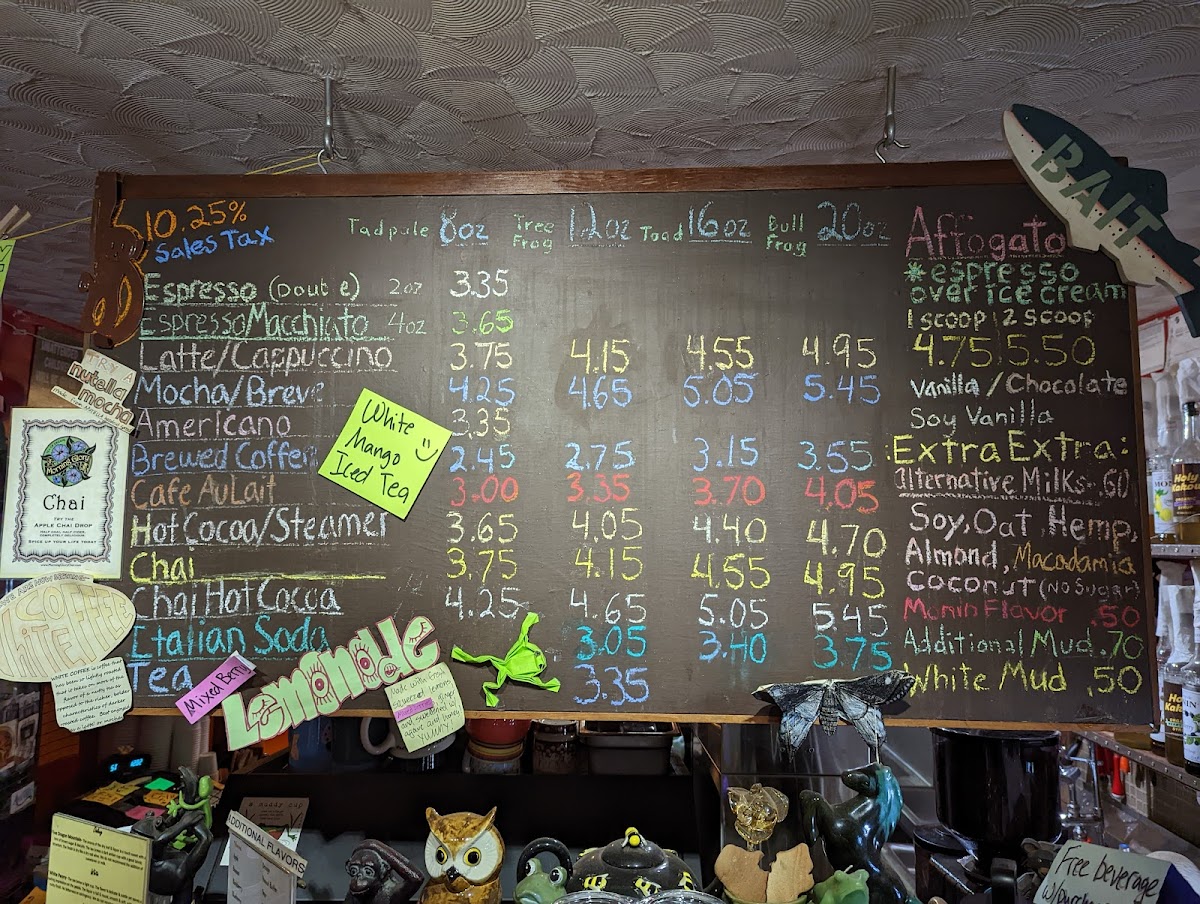 10.25%
Sales Tax
Tadpole 8oz Tree Frog 12oz Toad 16oz Bull Frog 20oz
Espresso (Double) 2oz 3.35
Espresso Macchiato 4oz 3.65
Latte/Cappuccino 3.75 4.15 4.55 4.95
Mocha/Breve 4.25 4.65 5.05 5.45
Americano 3.35
Brewed Coffee 2.45 2.75 3.15 3.55
Cafe Au Lait 3.00 3.35 3.70 4.05
Hot Cocoa/Steamer 3.65 4.05 4.40 4.70
Chai 3.75 4.15 4.55 4.95
Chai Hot Cocoa 4.25 4.65 5.05 5.45
Italian Soda 3.05 3.40 3.75
Tea 3.35
Affogato
*espresso
over ice cream
1 scoop 2 scoop
4.75 5.50
Vanilla/Chocolate
Soy Vanilla
Extra Extra:
alternative Milks .60
Soy, Oat Hemp,
Almond, Macadamia
coconut (No Sugar)
Monin Flavor .50
Additional Mud .70
White Mud .50
BAIT
White
Mango
Iced Tea
TRY A
nutella
mocha
Morning Glory
Chai
TRY THE
APPLE CHAI DROP
HALF CHAI, HALF CIDER,
COMPLETELY DELICIOUS.
SPICE UP YOUR LIFE TODAY
WHITE COFFEE
Mixed Berry
Lemonade
Made with fresh
squeezed lemons
YUUM!
ADDITIONAL FLAVORS
Free beverage
w/purchase
Holy
Kakow